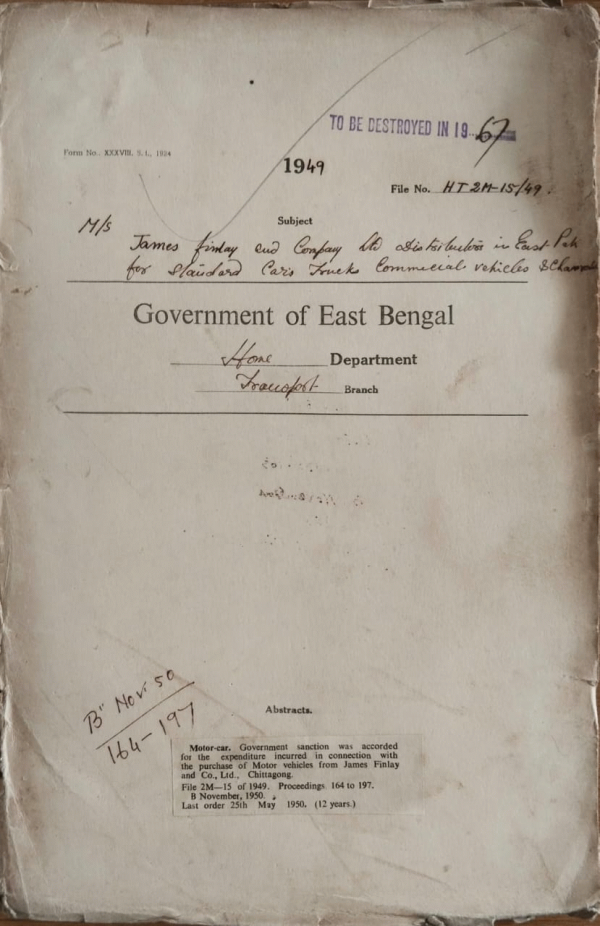 TO BE DESTROYED IN 19 67
Form No. XXXVIII, S. I., 1884
1949
File No. HT 2M-15/49.
Subject
M/s James Finlay and Company Ltd Distributors in East Pak
for Standard Cars Trucks Commercial vehicles &
Government of East Bengal
Home Department
Transport Branch
B" Nov. 50
164-197
Abstracts.
Motor-car. Government sanction was accorded
for the expenditure incurred in connection with
the purchase of Motor vehicles from James Finlay
and Co., Ltd., Chittagong.
File 2M—15 of 1949. Proceedings 164 to 197.
B November, 1950.
Last order 25th May 1950. (12 years.)